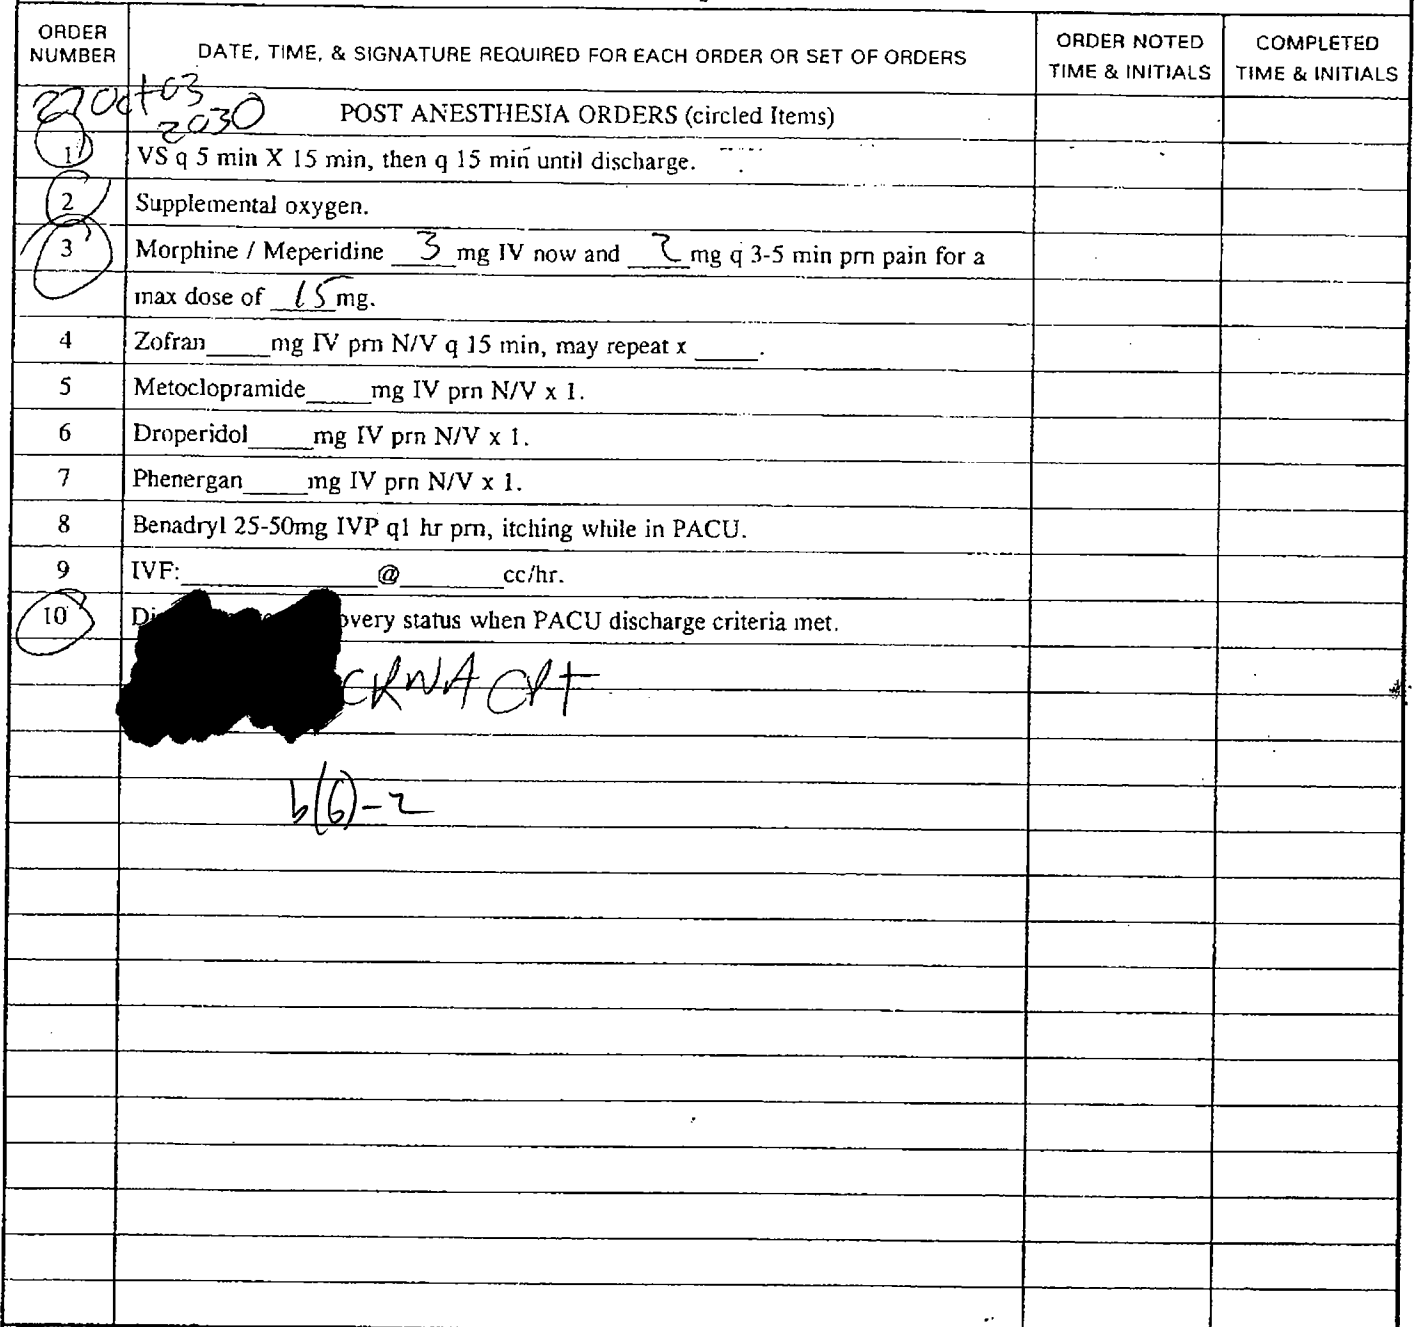 ORDER NUMBER DATE, TIME, & SIGNATURE REQUIRED FOR EACH ORDER OR SET OF ORDERS ORDER NOTED TIME & INITIALS COMPLETED TIME & INITIALS
Oct 03
2030 POST ANESTHESIA ORDERS (circled Items)
1 VS q 5 min X 15 min, then q 15 min until discharge.
2 Supplemental oxygen.
3 Morphine / Meperidine 3 mg IV now and 2 mg q 3-5 min prn pain for a
max dose of 15 mg.
4 Zofran_____mg IV prn N/V q 15 min, may repeat x _____.
5 Metoclopramide_____mg IV prn N/V x 1.
6 Droperidol_____mg IV prn N/V x 1.
7 Phenergan_____mg IV prn N/V x 1.
8 Benadryl 25-50mg IVP q1 hr prn, itching while in PACU.
9 IVF:_______________@________cc/hr.
10 status when PACU discharge criteria met.
CRNA CPT
b(6)-2